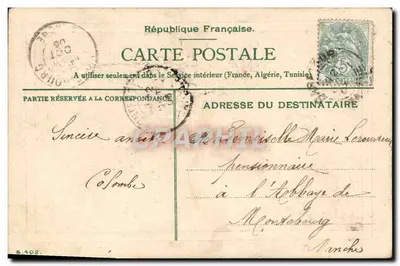 République Française.
CARTE POSTALE
A utiliser seulement dans le Service intérieur (France, Algérie, Tunisie)
PARTIE RÉSERVÉE A LA CORRESPONDANCE
ADRESSE DU DESTINATAIRE
Sincère amitié
Colombe
Mademoiselle Marie
pensionnaire
à l'Abbaye de
Montebourg
Manche